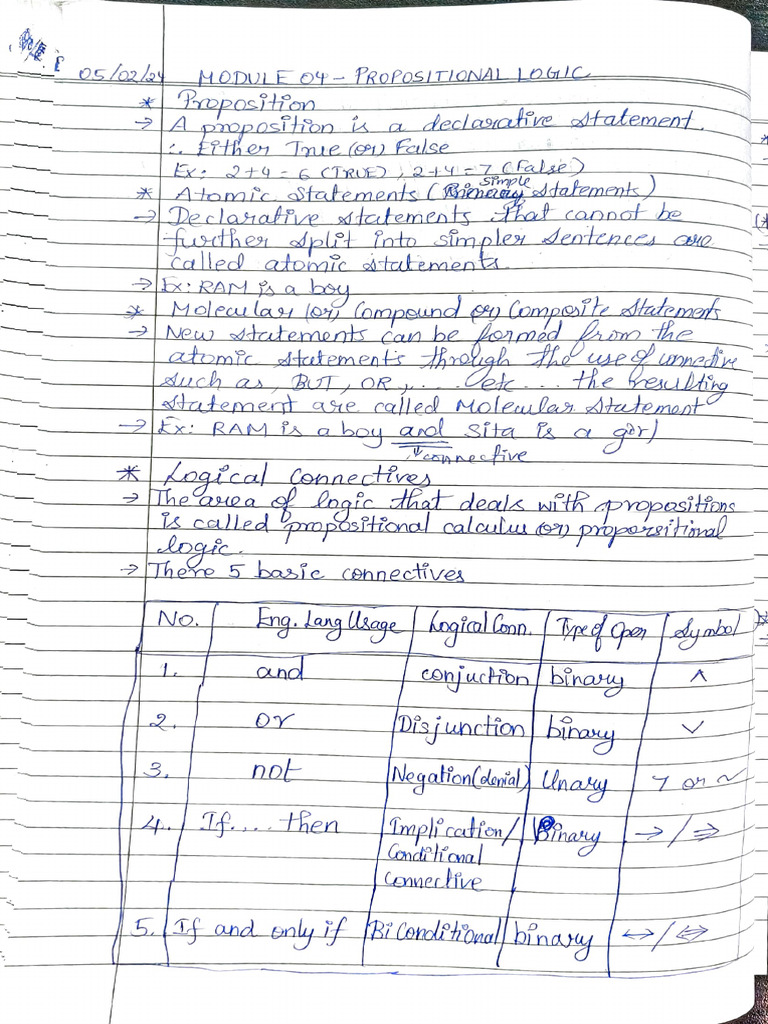 05/02/24 MODULE 04 - PROPOSITIONAL LOGIC
* Proposition
→ A proposition is a declarative statement.
∴ Either True (or) False
Ex: 2+4 = 6 (TRUE), 2+4 = 7 (False)
* Atomic Statements (Simple Statements)
→ Declarative statements that cannot be
further split into simpler sentences are
called atomic statements.
→ Ex: RAM is a boy
* Molecular (or) Compound (or) Composite Statements
→ New statements can be formed from the
atomic statements through the use of
such as, BUT, OR, .... etc ... the resulting
statement are called Molecular Statement
→ Ex: RAM is a boy and Sita is a girl
↓ connective
* Logical Connectives
→ The area of logic that deals with propositions
is called propositional calculus (or) proporsitional
logic.
→ There 5 basic connectives
No. Eng. Lang Usage Logical Conn. Type of Oper Symbol
1. and conjuction binary ∧
2. or Disjunction binary ∨
3. not Negation (denial) Unary ¬ or ~
4. If .... then Implication/ Binary → / ⇒
Conditional
Connective
5. If and only if BiConditional binary ↔ / ⇔